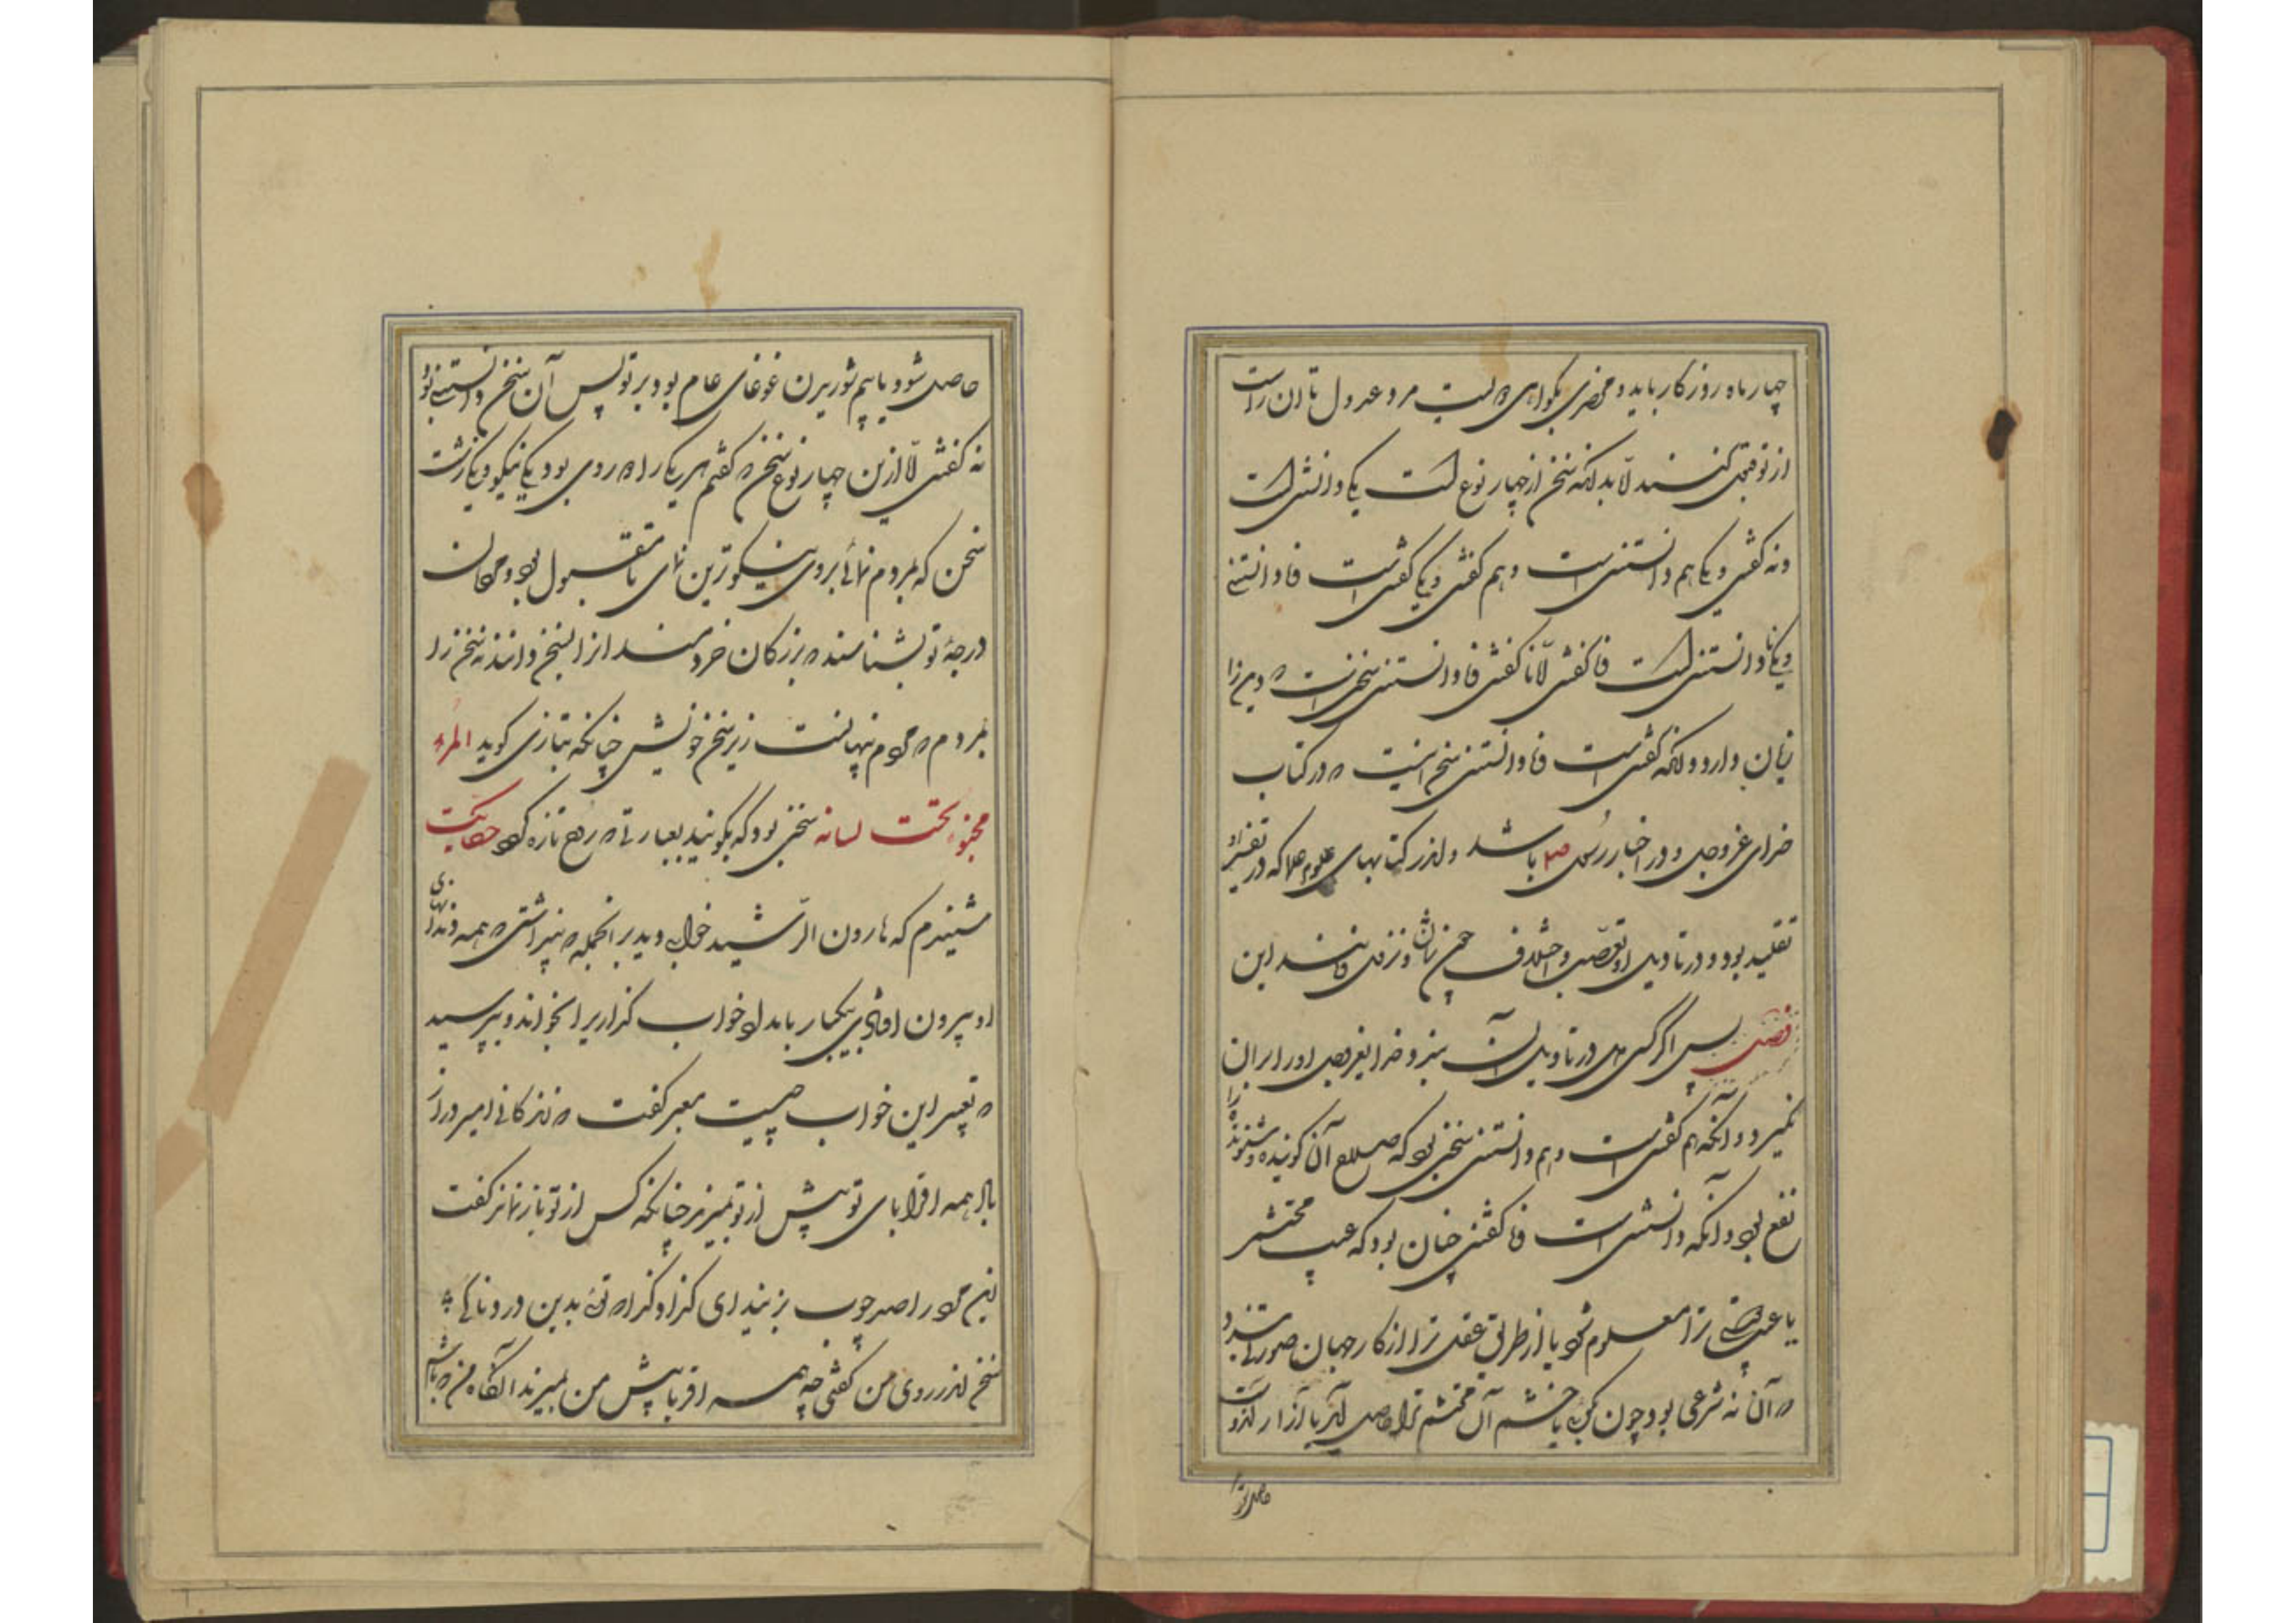 چهار ماه روزگار باید و محضری بگواهی دویست مرد عدول تا آن راست
از تو قبول کنند لابد آنکه سخن از چهار نوع است یکی دانستنی است
و نه گفتنی و یکی هم دانستنی است و هم گفتنی و یکی گفتنی است نادانستنی
و یکی نادانستنی است ناگفتنی اما ناگفتنی نادانستنی سخنی است که دین را
زیان دارد و آنکه گفتنی است نادانستنی سخنی است که در کتاب
خدای عزوجل و در اخبار رسول صلعم باشد و اندر کتابهای علوم علما که در تفسیر او
تقلید بود و در تاویل او تعصب و اختلاف چون
فصل پس اگر کسی دل در تاویل آن نبندد خدای عزوجل او را بدان
نگیرد و آنکه هم گفتنی است و هم دانستنی سخنی بود که صلاح آن گوینده و شنونده را
نفع بود و آنکه دانستنی است ناگفتنی چنان بود که عیب محتشمی
یا عیب دوستی ترا معلوم شود یا از طریق عقل ترا از کار جهان صورتی بندد
که آن نه شرعی بود چون بگویی یا خشم آن محتشم ترا حاصل آید یا آزار آن دوست
حاصل ترا
حاصل شود یا بیم شوریدن غوغای عام بود بر تو پس آن سخن دانستنی بود
نه گفتنی اما ازین چهار نوع سخن که گفتم هر یکی را دو روی بود یکی نیکو و یکی زشت
سخن که بمردم نمائی بروی نیکوترین نمای تا مقبول بود و مردمان
درجهٔ تو بشناسند که بزرگان خردمند از سخن دانند نه سخن را
بمردم که مردم پنهانست زیر سخن خویش چنانکه بتازی گوید المرء
مخبوء تحت لسانه سخنی بود که بگویند بعبارتی که روح تازه گردد حکایت
شنیدم که هارون الرشید خوابی دید بر آنجمله که پنداشتی که همه دندانهای
او بیرون افتادی بیکبار بامداد خواب گذاری را بخواند و بپرسید
که تعبیر این خواب چیست معبر گفت که زندگانی امیر دراز
باد همه اقربای تو پیش از تو بمیرند چنانکه کس از تو باز نماند گفت
این مرد را صد چوب بزنید ای
سخن اندر روی من گفتی چه همه اقربا پیش من بمیرند آنگاه من که باشم